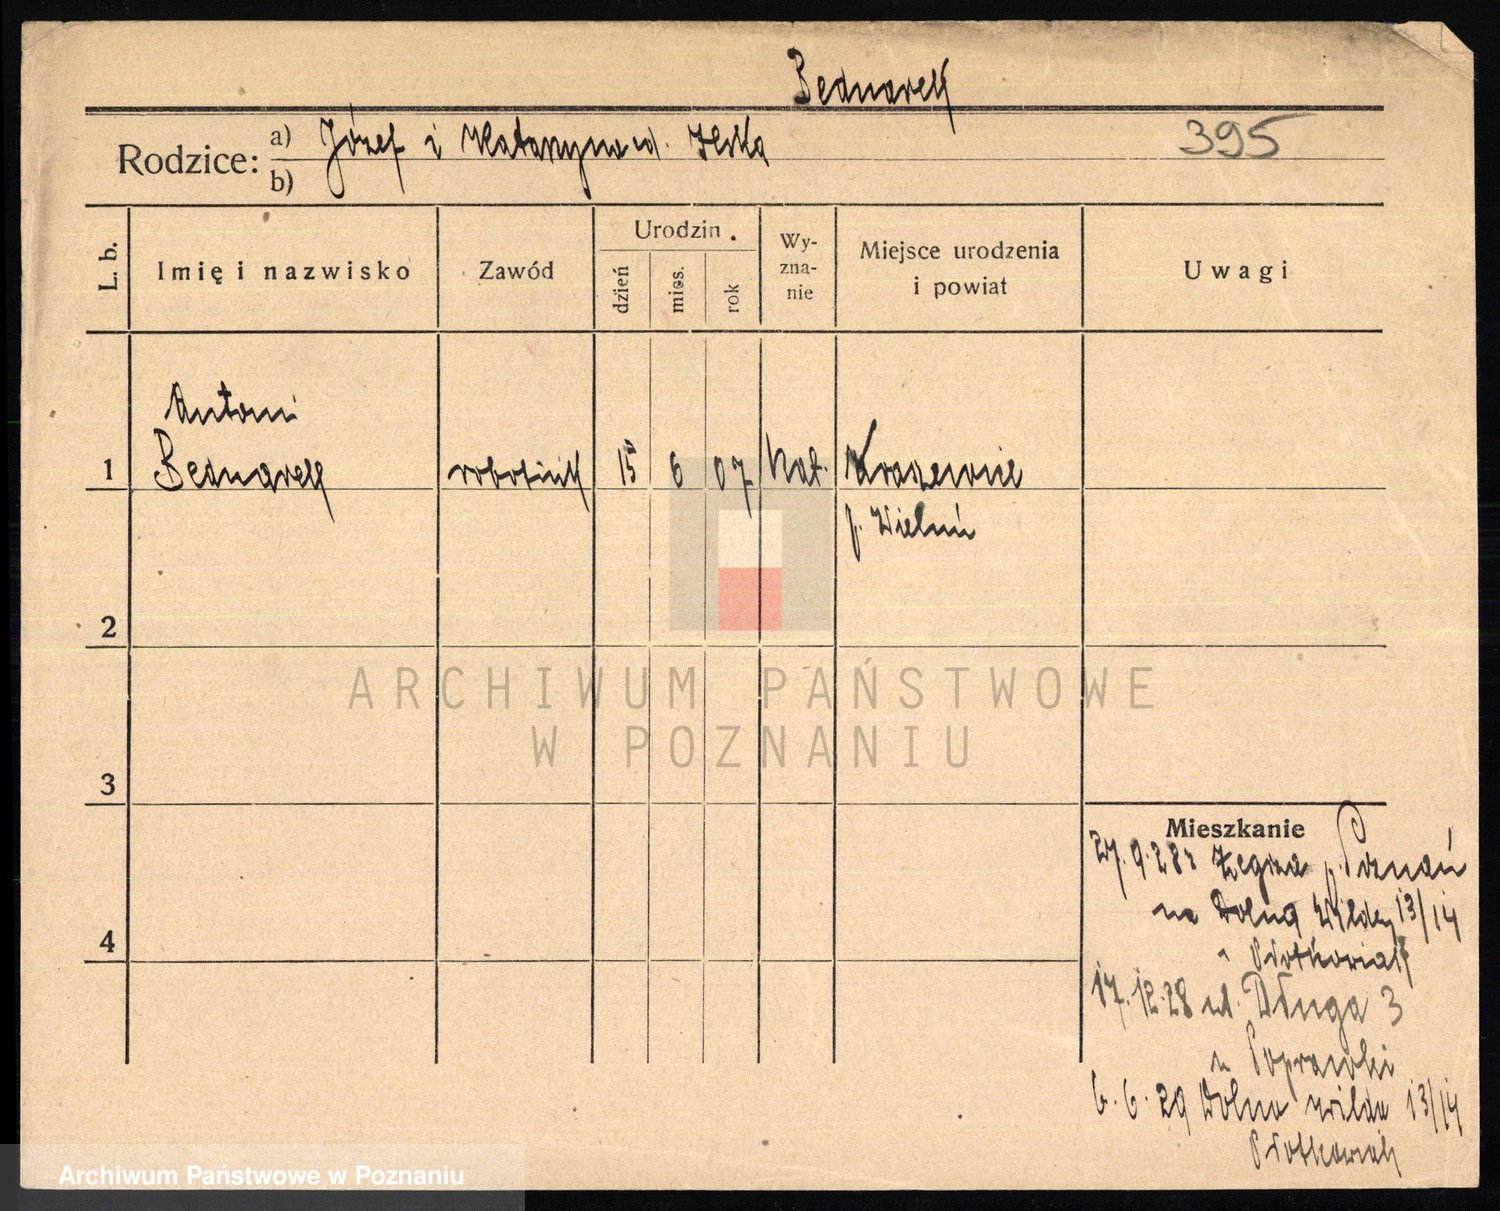 Bednarek
Rodzice: a) Józef i Katarzyna d. Ilska
b)
395
L. b.
Imię i nazwisko
Zawód
Urodzin
dzień
mies.
rok
Wy-
zna-
nie
Miejsce urodzenia
i powiat
Uwagi
Antoni
1 Bednarek robotnik 15 6 07 kat. Kraszewice
p. Wieluń
2
3
4
Mieszkanie
27.9.28 z Żegrza p. Poznań
na Dolną Wildę 13/14
u Piotkowiak
17.12.28 ul. Długa 3
u Poprawski
6.6.29 Dolna Wilda 13/14
Piotkowiak
ARCHIWUM PAŃSTWOWE
W POZNANIU
Archiwum Państwowe w Poznaniu